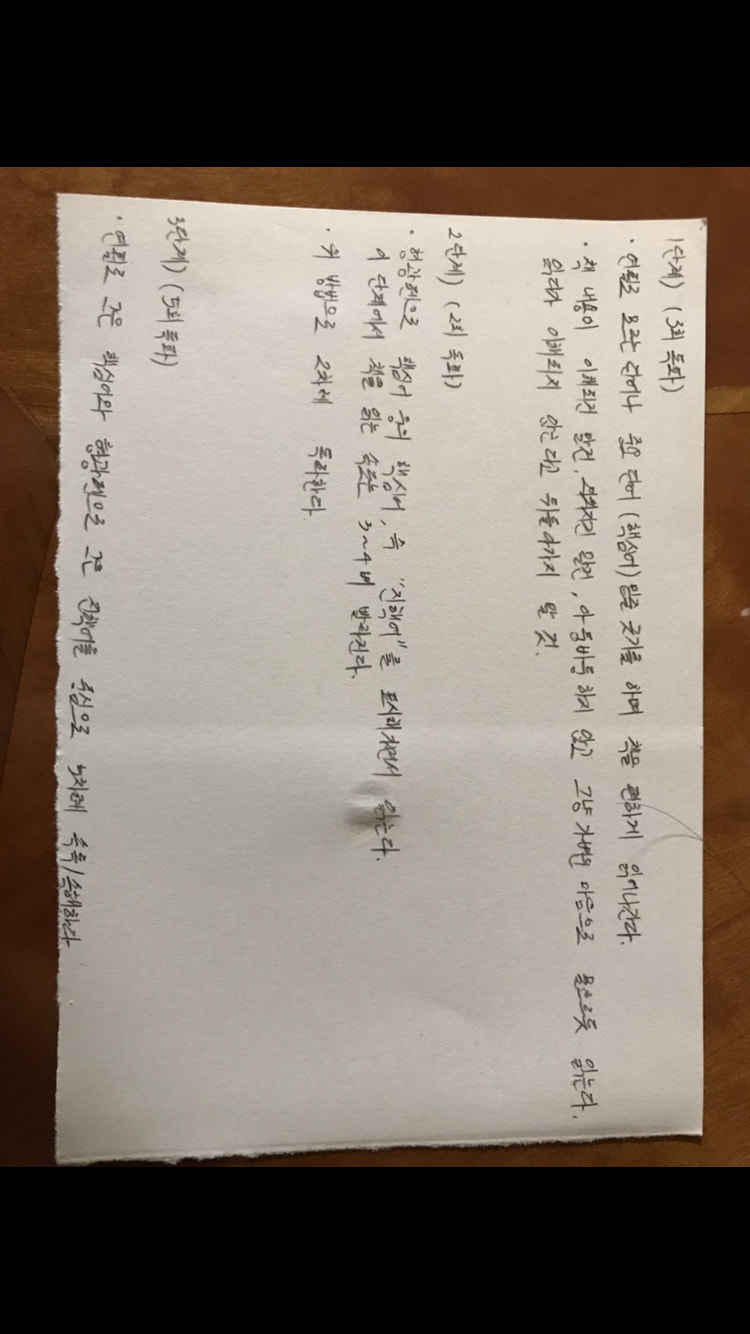 1단계) (3회 독파)
· 연필로 모르는 단어나 중요 단어 (핵심어) 밑줄 긋기를 하며 책을 편하게 읽어나간다.
· 책 내용이 이해되건 말건, 외워지건 말건, 아등바등 하지 않고 그냥 가벼운 마음으로 물 흐르듯 읽는다.
읽다가 이해되지 않는다고 뒤돌아가지 말 것.
2단계) (2회 독파)
· 형광펜으로 핵심어 중의 핵심어, 즉 "진핵어"를 표시해가면서 읽는다.
이 단계에서 책을 읽는 속도는 3~4배 빨라진다.
· 위 방법으로 2차례 독파한다.
3단계) (5회 독파)
· 연필로 그은 핵심어와 형광펜으로 그은 진핵어를 중심으로 5차례 속독/속해한다